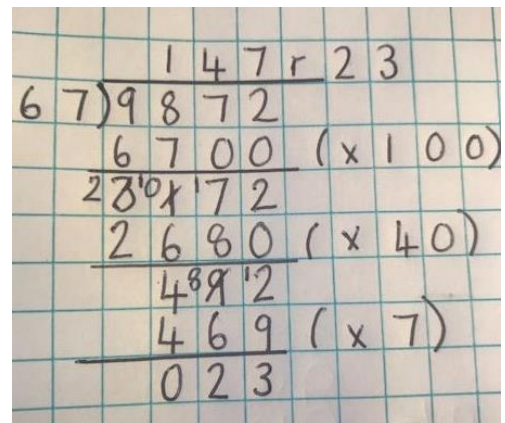 147 r 23
67)9872
6700 (x100)
3172
2680 (x40)
492
469 (x7)
023